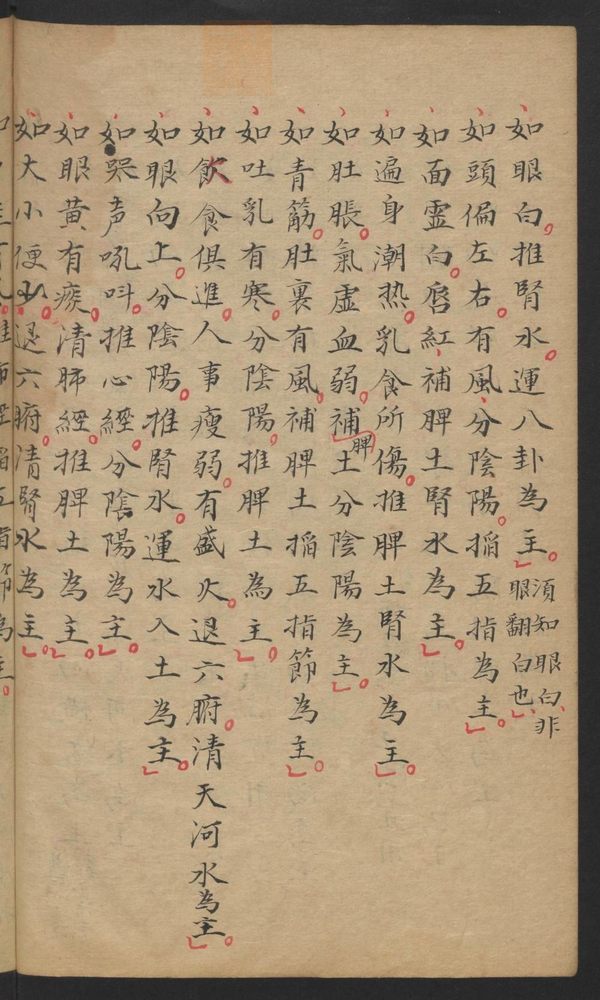 如眼白。推腎水。運八卦為主。須知眼白、非眼翻白也、
如頭偏左右。有風、分陰陽。掐五指為主。
如面霊白。唇紅、補脾土腎水為主。
如遍身潮热。乳食所傷。推脾土腎水為主。
如肚脹。氣虛血弱。補脾土分陰陽為主。
如青筋。肚裏有風。補脾土掐五指節為主。
如吐乳有寒。分陰陽。推脾土為主。
如飲食俱進。人事瘦弱。有盛火。退六腑。清天河水為主。
如眼向上。分陰陽。推腎水。運水入土為主。
如哭声吼呌。推心經。分陰陽為主。
如眼黄有痰。清肺經。推脾土為主。
如大小便少。退六腑。清腎水為主。